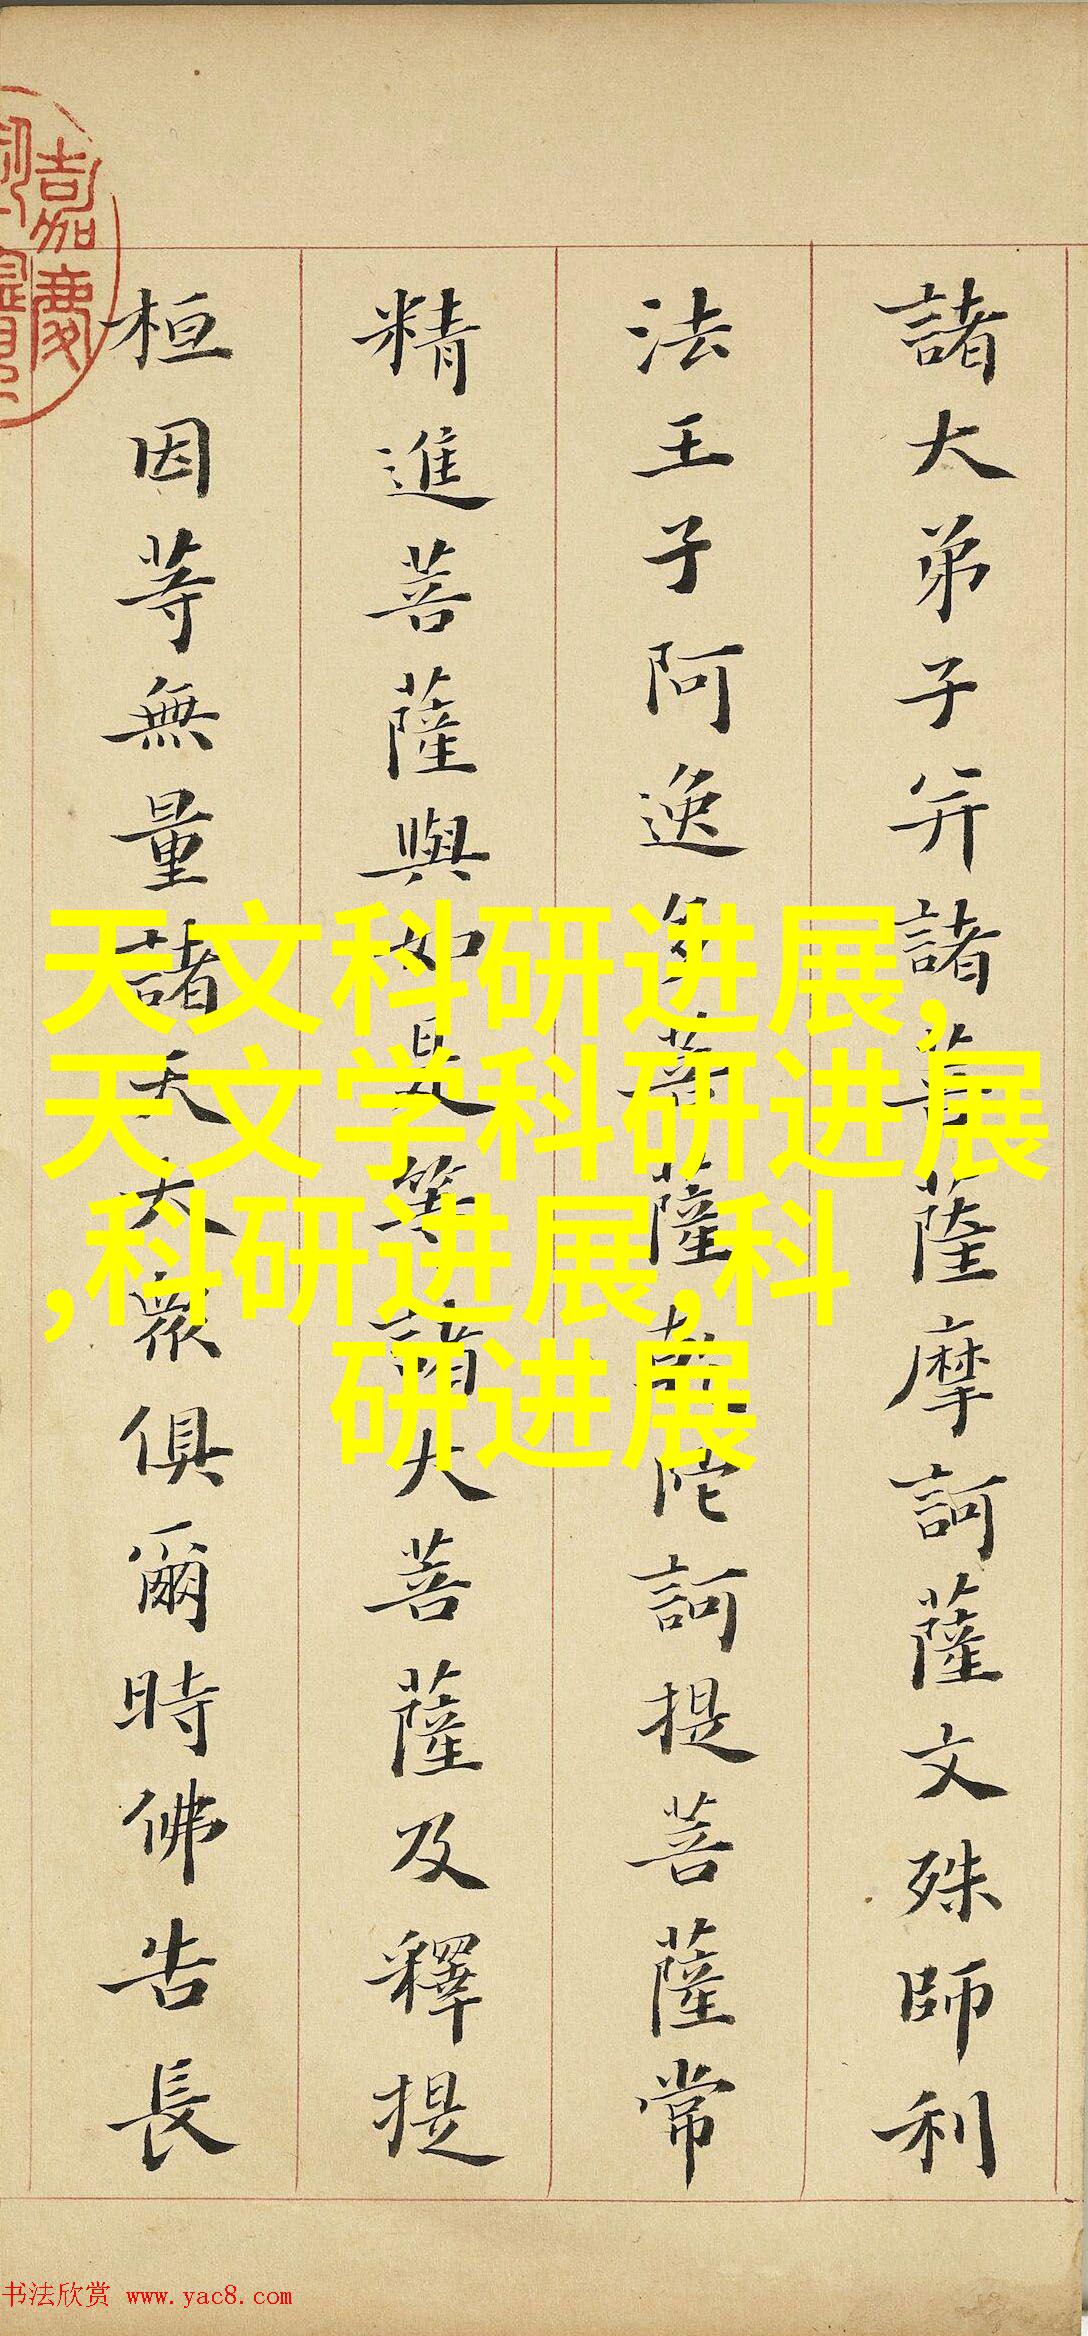 諸大弟子并諸菩薩摩訶薩文殊師利
法王子阿逸多菩薩乾陀訶提菩薩常
精進菩薩與如是等諸大菩薩及釋提
桓因等無量諸天大眾俱爾時佛告長
嘉慶
天文科研进展,
天文学科研进展
,科研进展,科
研进展
书法欣赏 www.yac8.com